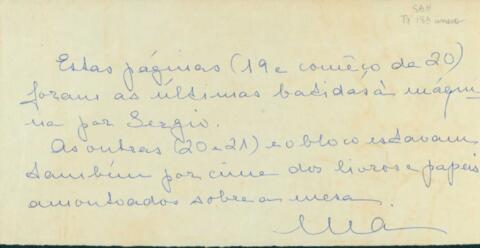 SBH
Estas páginas (19 e comêço da 20)
foram as últimas batidas à máqui
na por Sergio.
As outras (20 e 21) e o bloco estavam
também por cima dos livros e papeis
amontoados sobre a mesa.